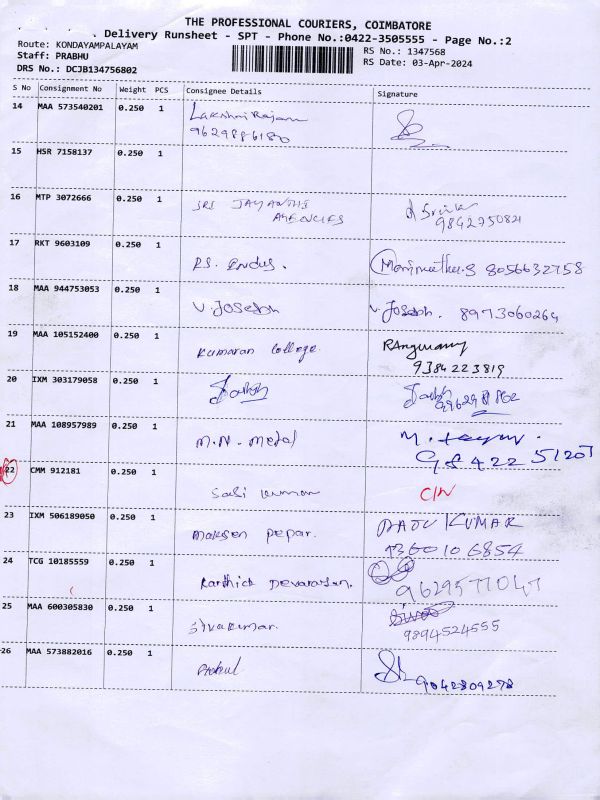 THE PROFESSIONAL COURIERS, COIMBATORE
Delivery Runsheet - SPT - Phone No.:0422-3505555 - Page No.:2
Route: KONDAYAMPALAYAM
Staff: PRABHU
DRS No.: DCJB134756802
RS No.: 1347568
RS Date: 03-Apr-2024
S No Consignment No Weight PCS Consignee Details Signature
14 MAA 573540201 0.250 1 Lakshmi Rajam
9629886180
15 HSR 7158137 0.250 1
16 MTP 3072666 0.250 1 SRI JAYANTHI
AGENCIES
9842275082
17 RKT 9603109 0.250 1
RS. Indus. 8056632758
18 MAA 944753053 0.250 1
V. Joseph V. Joseph. 8973060264
19 MAA 105152400 0.250 1
Kumaran College. RAngasamy
9384223819
20 IXM 303179058 0.250 1
21 MAA 108957989 0.250 1
M.N. Metal
98422 51207
22 CMM 912181 0.250 1
Sasi Kumar C/N
23 IXM 506189050 0.250 1
Maksen Pepar. RAJU KUMAR
9360106854
24 TCG 10185559 0.250 1
Karthick Devarasan. 9629577047
25 MAA 600305830 0.250 1
Sivakumar. Siva
9894524555
26 MAA 573882016 0.250 1
9042809278